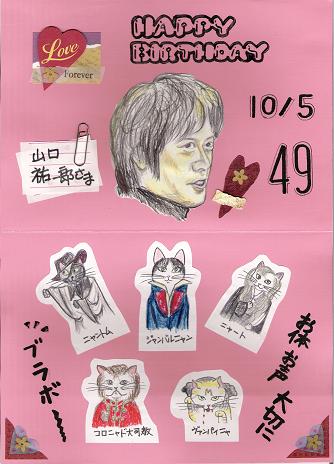 Love
Forever
HAPPY
BIRTHDAY
10/5
49
山口
祐一郎さま
ニャントム
ジャンバルニャン
ニャート
コロニャド大司教
ヴァンパイニャ
お体お声大切に
ブラボー